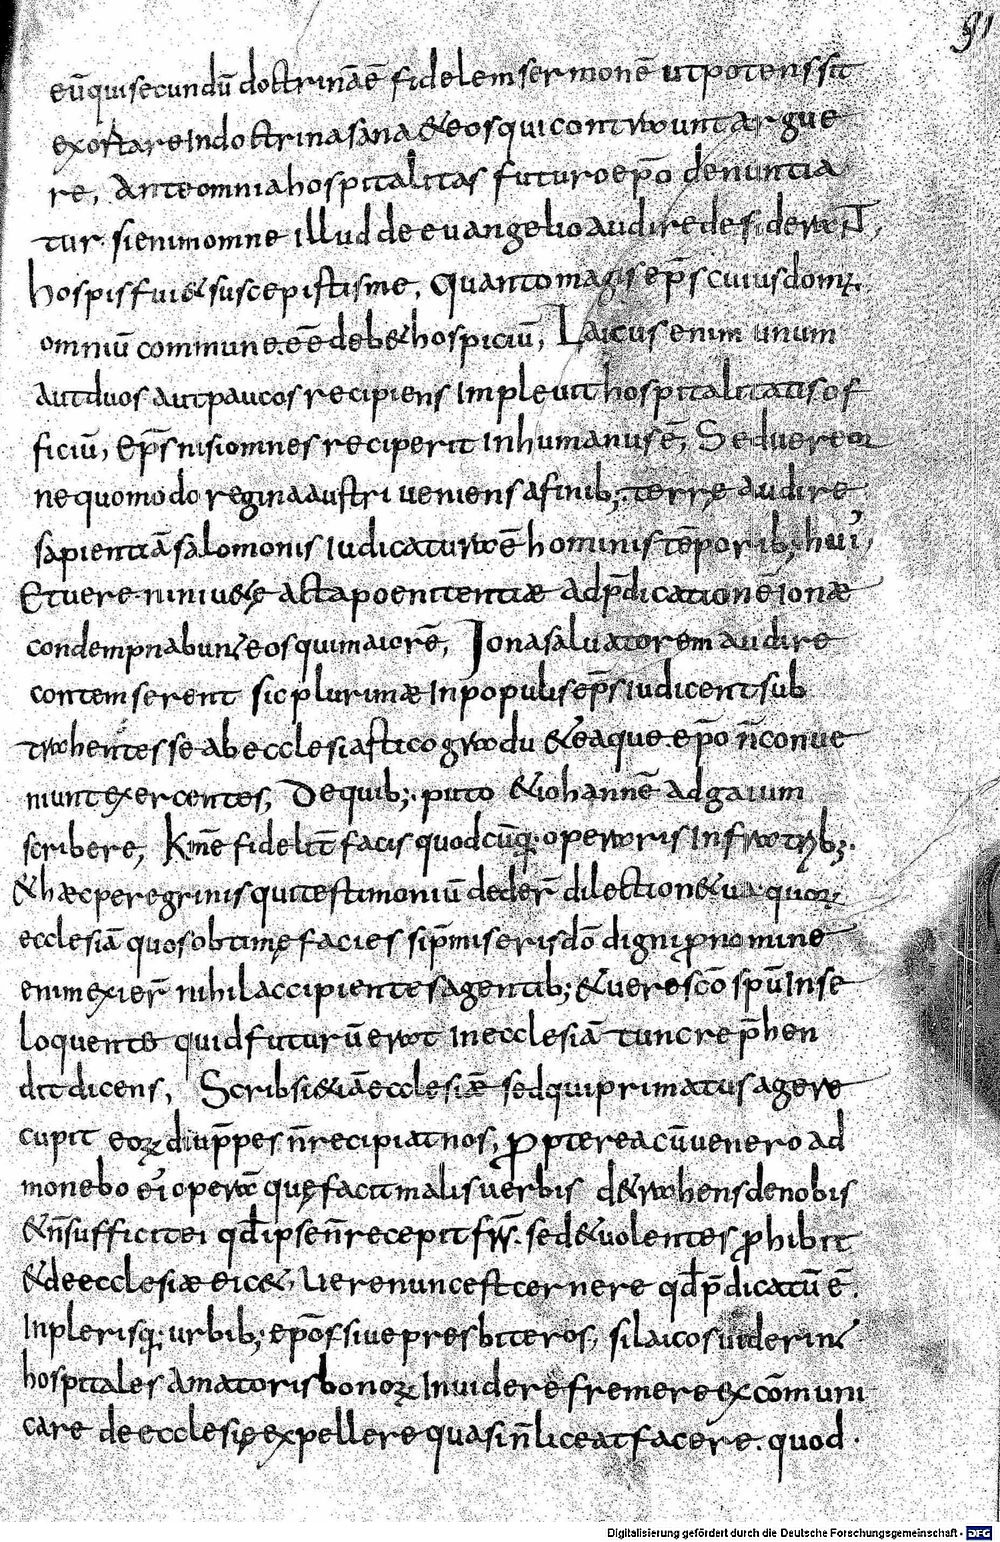 91
eū qui secundū doctrinā ē fidelem sermonē ut potens sit
exortare In doctrina sana & eos qui contradount argue
re, Ante omnia hospitalitas futuro ep̄o denuntia
tur. si enim omne illud de evangelio audire desiderant,
hospis fui & suscepistis me, Quanto magis ep̄s cuius domꝫ
omniū commune eē deb& hospiciū, Laicus enim unum
aut duos aut paucos recipiens Implevit hospitalitatis of
ficiū, Ep̄s nisi omnes reciperit Inhumanus ē, Sed vereor
ne quomodo regina austri veniens a finib; terrę audire
sapientiā salomonis Iudicatura ē hominis tēporib; hui'
Et vere ninivę acta poenitentiæ ad p̄dicationē Ionæ
condempnabun& eos qui maiorē, Iona salvatorem audire
contemserent sic plurimæ In populis ep̄s Iudicent sub
trahentes se ab ecclesiastico gradu & ea que ep̄o n̄ conve
niunt exercentes, De quib; puto & iohannē ad gaium
scribere, Kmē fidelit facis quodcūq; operaris In fratrib;
& hæc peregrinis qui testimoniū deder̄ dilection& uæ quorꝫ
ecclesiā quos obtimę facies si p̄miseris dō digni pro nomine
enim exier̄ nihil accipientes a gentib; & vere scō spū In se
loquente quid futurū erat In ecclesiā tunc rep̄hen
dit dicens, Scribsi & iā ecclesiæ sed qui primatus agere
cupit eorꝫ n̄ recipiat nos, propterea cū venero ad
monebo ei' opera quę facit malis verbis d&rahens de nobis
& n̄ sufficit ei qd̄ ipse n̄ recepit frs. sed & volentes prohibit
& de ecclesiæ eic&, Vere nunc est cernere qd̄ p̄dicatū ē.
In plerisq; urbib; ep̄os sive presbiteros, si laicos viderin&
hospitales amatoris bonorꝫ Invidere fremere excōmuni
care de ecclesię expellere quasi n̄ liceat facere. quod
Digitalisierung gefördert durch die Deutsche Forschungsgemeinschaft - DFG